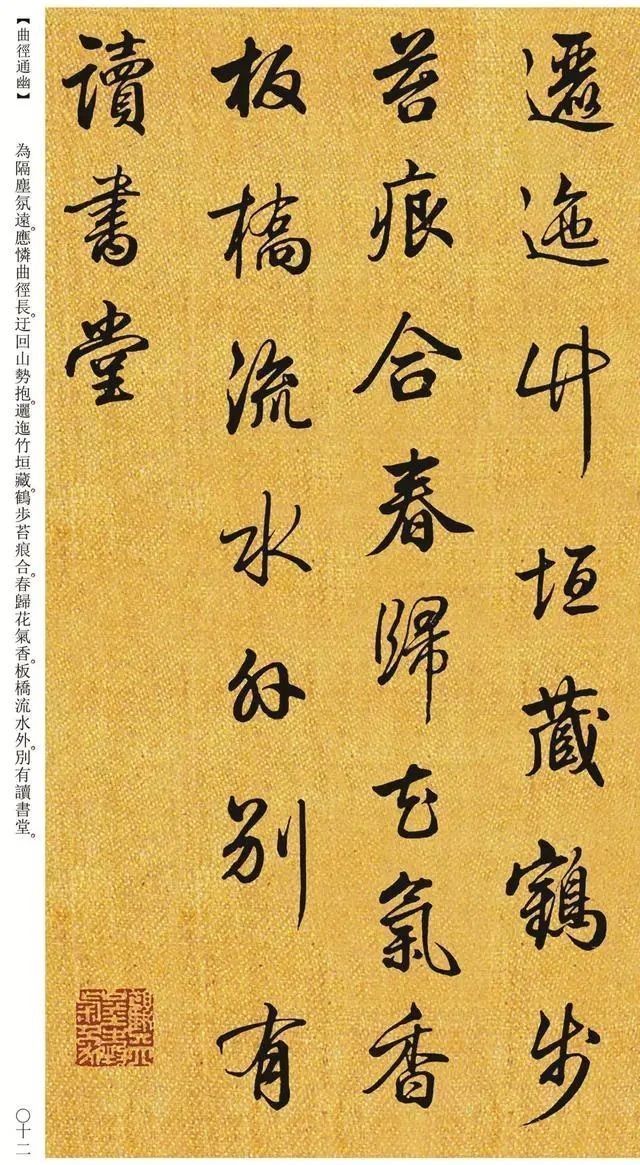 邐迤竹垣藏鶴步
苔痕合春歸花氣香
板橋流水外別有
讀書堂
【曲徑通幽】 為隔塵氛遠。應憐曲徑長。迂回山勢抱。邐迤竹垣藏。鶴歩苔痕合。春歸花氣香。板橋流水外。別有讀書堂。
〇十二